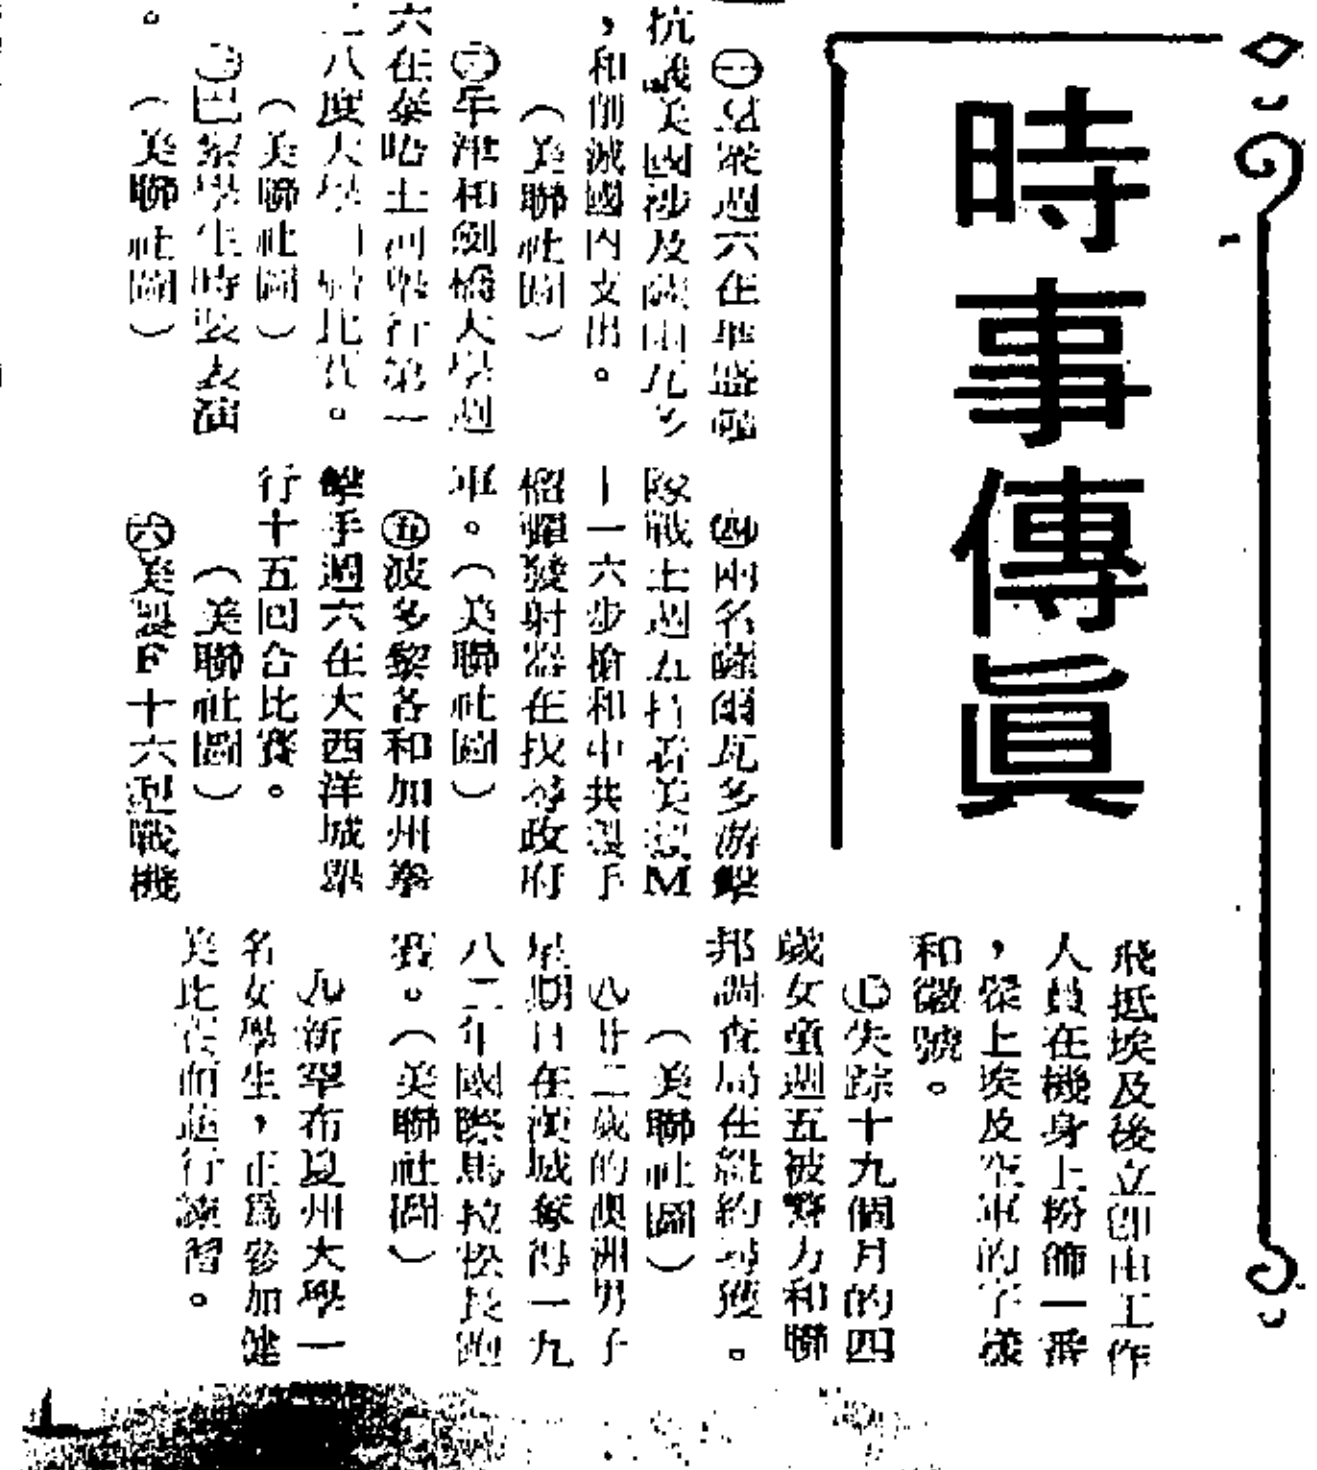 時事傳眞
㊀群衆週六在華盛頓
抗議美國涉及薩爾瓦多
，和削減國內支出。
（美聯社圖）
㊁牛津和劍橋大學週
六在泰晤士河舉行第一
二八度大學　　比賽。
（美聯社圖）
㊂巴黎學生時裝表演
。（美聯社圖）
㊃兩名薩爾瓦多游擊
隊戰士週五持着美製M
－一六步槍和中共製手
榴彈發射器在找尋政府
軍。（美聯社圖）
㊄波多黎各和加州拳
擊手週六在大西洋城舉
行十五回合比賽。
（美聯社圖）
㊅美製F十六型戰機
飛抵埃及後立卽由工作
人員在機身上粉飾一番
，髹上埃及空軍的字樣
和徽號。
㊆失踪十九個月的四
歲女童週五被警方和聯
邦調查局在紐約尋獲。
（美聯社圖）
㊇廿二歲的澳洲男子
星期日在漢城奪得一九
八二年國際馬拉松長跑
賽。（美聯社圖）
㊈新罕布夏州大學一
名女學生，正爲參加健
美比賽而進行練習。